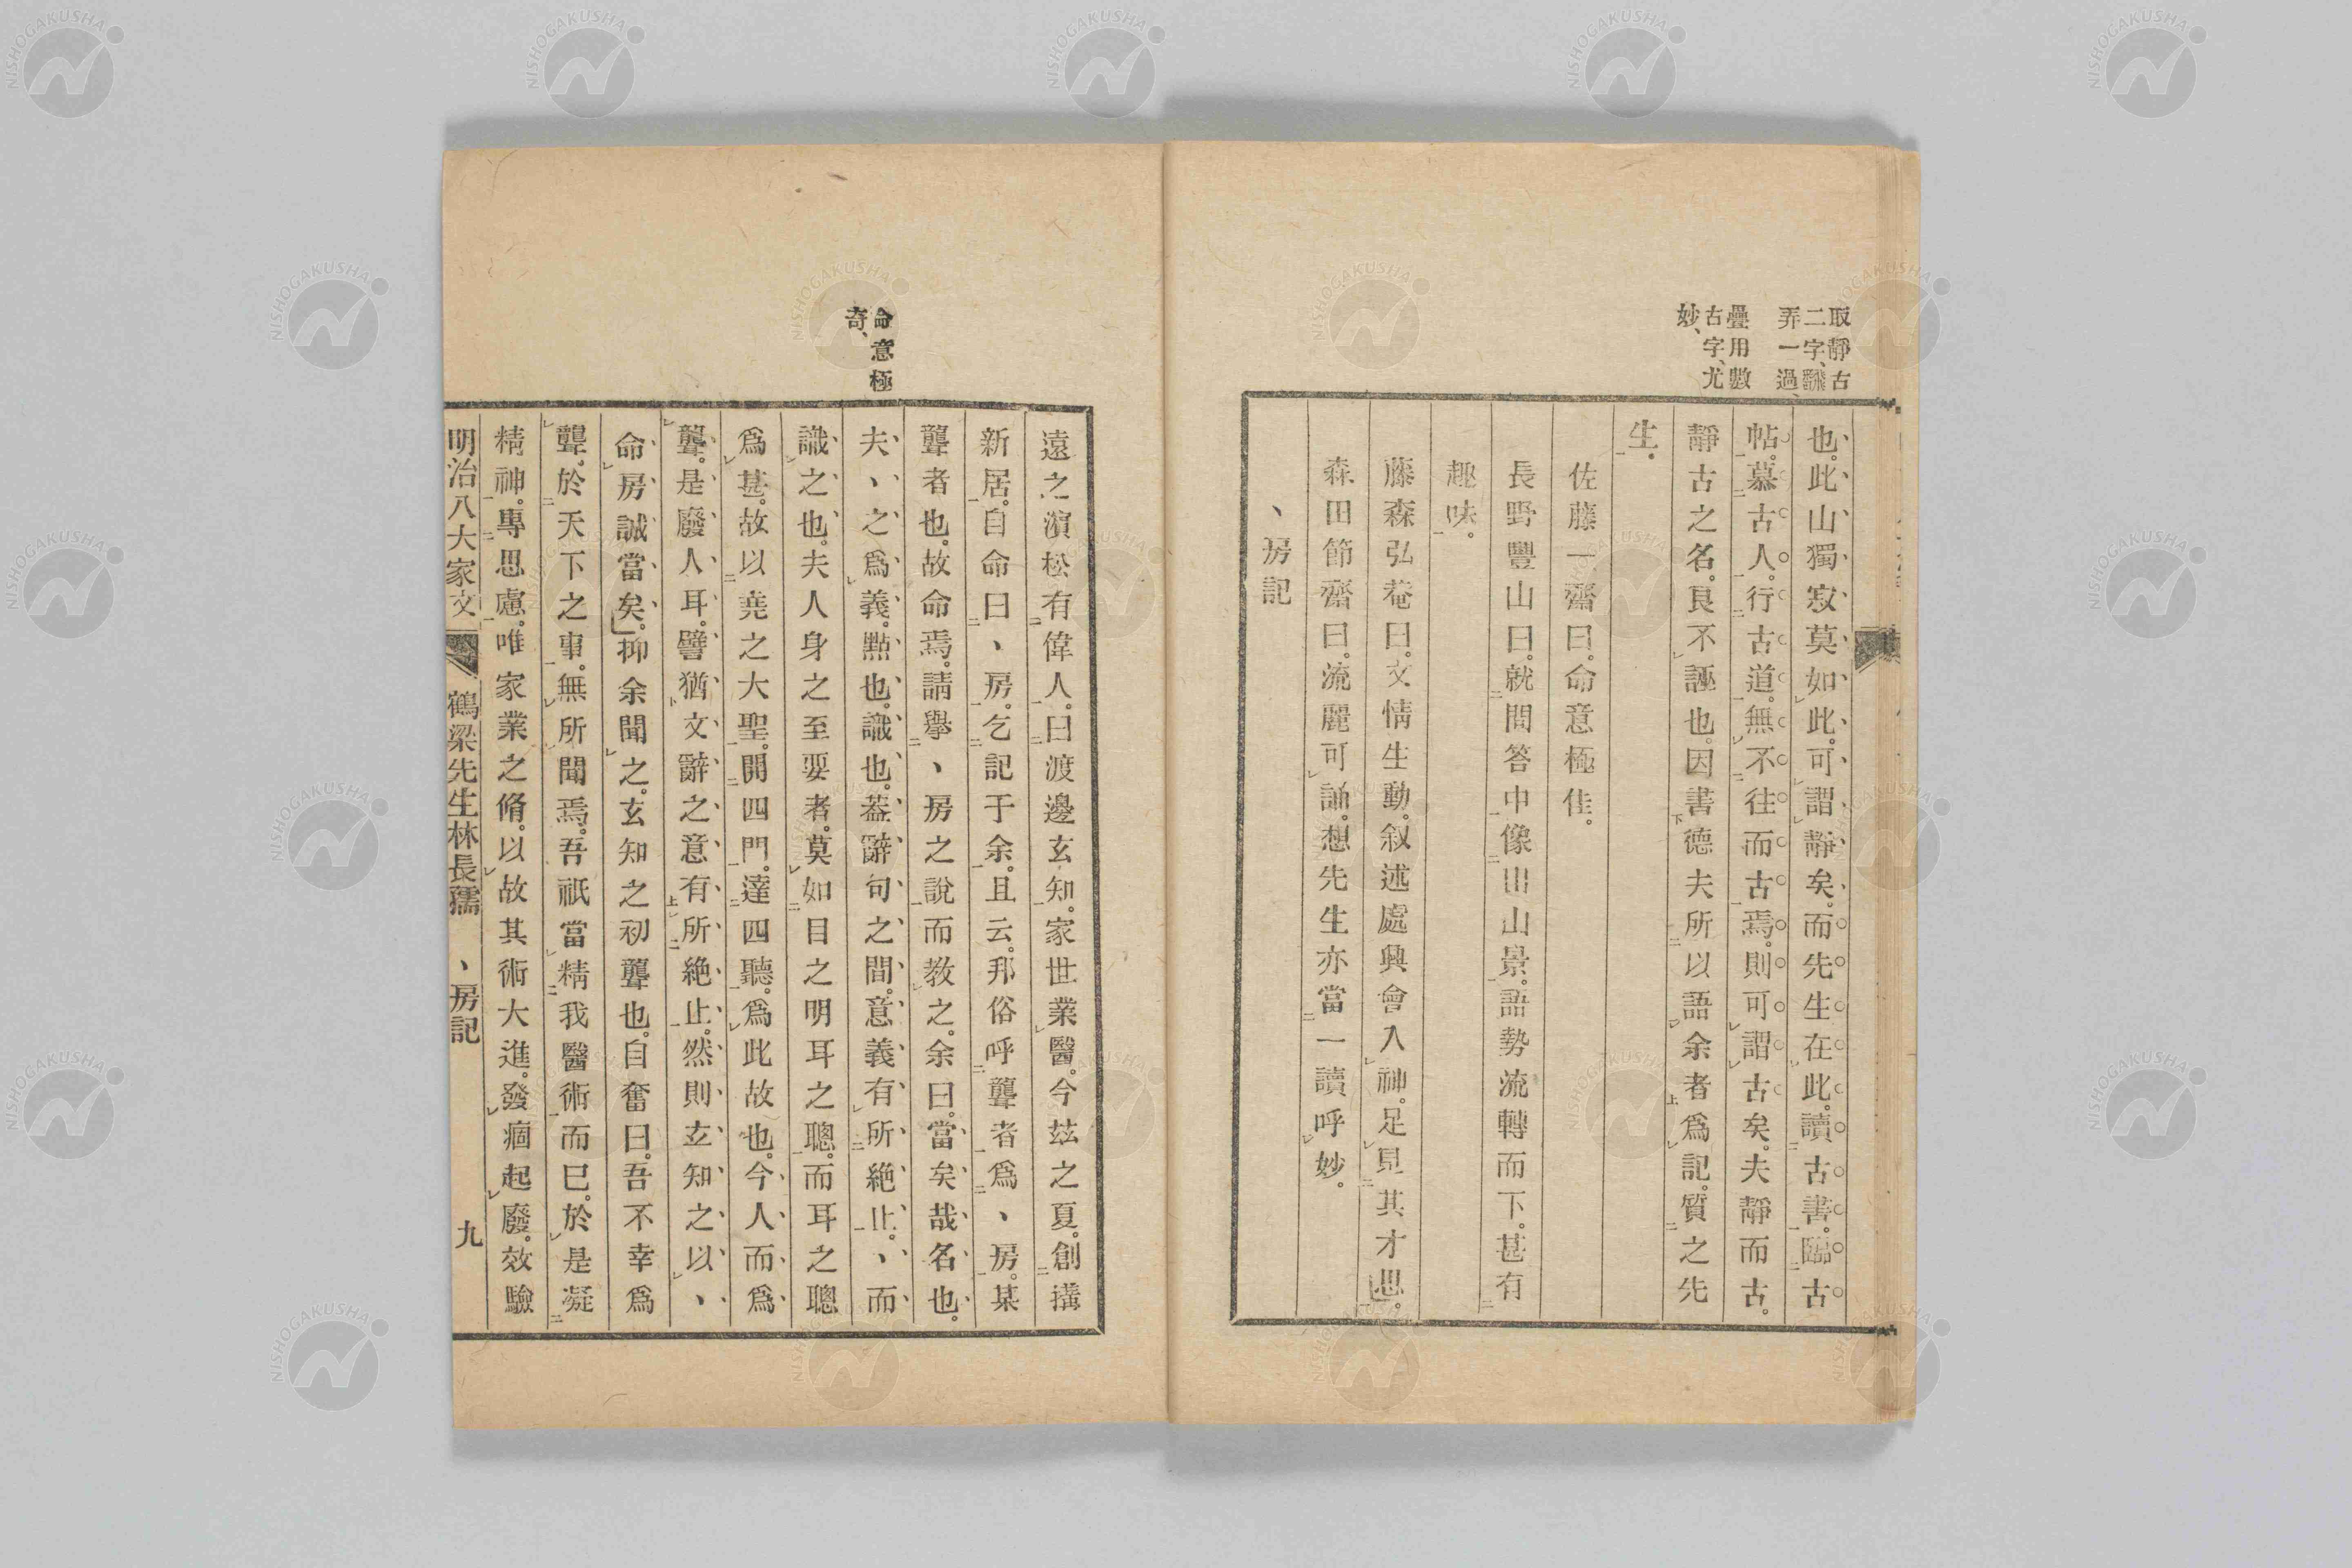 取靜古
二字、飜
弄一過、
疊用數
古字、尤
妙、
也。此山獨寂莫如此。可謂靜矣。而先生在此。讀古書。臨古
帖。慕古人。行古道。無不徃而古焉。則可謂古矣。夫靜而古。
靜古之名。良不誣也。因書德夫所以語余者爲記。質之先
生。
佐藤一齋曰。命意極佳。
長野豐山曰。就問答中像出山景。語勢流轉而下。甚有
趣味。
藤森弘菴曰。文情生動。叙述處興會入神。足見其才思。
森田節齋曰。流麗可誦。想先生亦當一讀呼妙。
、房記
命意極
奇、
遠之濱松有偉人。曰渡邊玄知。家世業醫。今玆之夏。創搆
新居。自命曰、房。乞記于余。且云。邦俗呼聾者爲、房。某
聾者也。故命焉。請擧、房之說而敎之。余曰。當矣哉名也。
夫、之爲義。點也。識也。葢辭句之間。意義有所絶止。、而
識之也。夫人身之至要者。莫如目之明耳之聰。而耳之聰
爲甚。故以堯之大聖。開四門。達四聽。爲此故也。今人而爲
聾。是廢人耳。譬猶文辭之意有所絶止。然則玄知之以、
命房誠當矣。抑余聞之。玄知之初聾也。自奮曰。吾不幸爲
聾。於天下之事。無所聞焉。吾祇當精我醫術而已。於是凝
精神。專思慮。唯家業之脩。以故其術大進。發痼起廢。效驗
明治八大家文 鶴梁先生林長孺 、房記 九
NISHOGAKUSHA